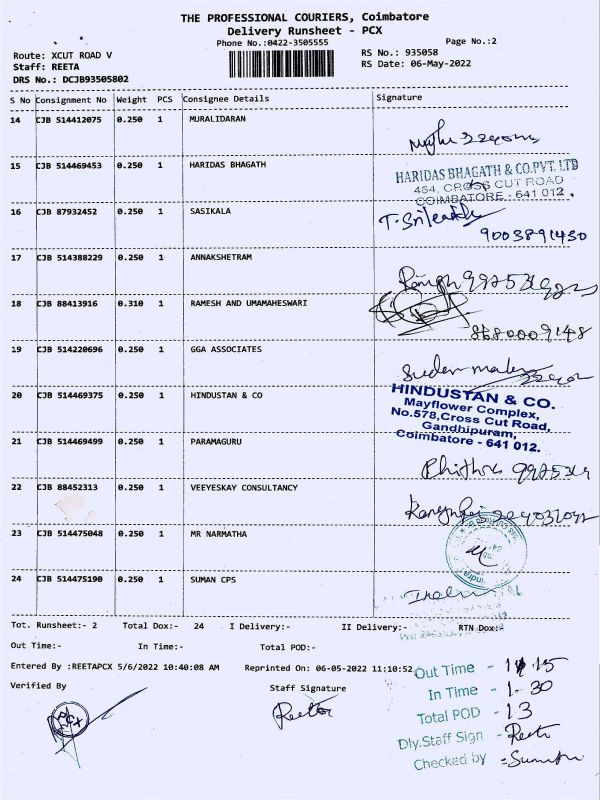 THE PROFESSIONAL COURIERS, Coimbatore
Delivery Runsheet - PCX
Phone No.:0422-3505555
Page No.:2
Route: XCUT ROAD V
RS No.: 935058
Staff: REETA
RS Date: 06-May-2022
DRS No.: DCJB93505802
S No Consignment No Weight PCS Consignee Details Signature
14 CJB 514412075 0.250 1 MURALIDARAN
15 CJB 514469453 0.250 1 HARIDAS BHAGATH
HARIDAS BHAGATH & CO.PVT. LTD
454, CROSS CUT ROAD
COIMBATORE - 641 012.
16 CJB 87932452 0.250 1 SASIKALA
9003891430
17 CJB 514388229 0.250 1 ANNAKSHETRAM
18 CJB 88413916 0.310 1 RAMESH AND UMAMAHESWARI
8680009148
19 CJB 514220696 0.250 1 GGA ASSOCIATES
20 CJB 514469375 0.250 1 HINDUSTAN & CO
HINDUSTAN & CO.
Mayflower Complex,
No.578,Cross Cut Road,
Gandhipuram,
Coimbatore - 641 012.
21 CJB 514469499 0.250 1 PARAMAGURU
22 CJB 88452313 0.250 1 VEEYESKAY CONSULTANCY
23 CJB 514475048 0.250 1 MR NARMATHA
24 CJB 514475190 0.250 1 SUMAN CPS
Tot. Runsheet:- 2 Total Dox:- 24 I Delivery:- II Delivery:- RTN Dox:#
Out Time:- In Time:- Total POD:-
Entered By :REETAPCX 5/6/2022 10:40:08 AM Reprinted On: 06-05-2022 11:10:52
Verified By Staff Signature
PCX
Reeta
Out Time - 11.15
In Time - 1-30
Total POD - 13
Dly.Staff Sign - Reeta
Checked by